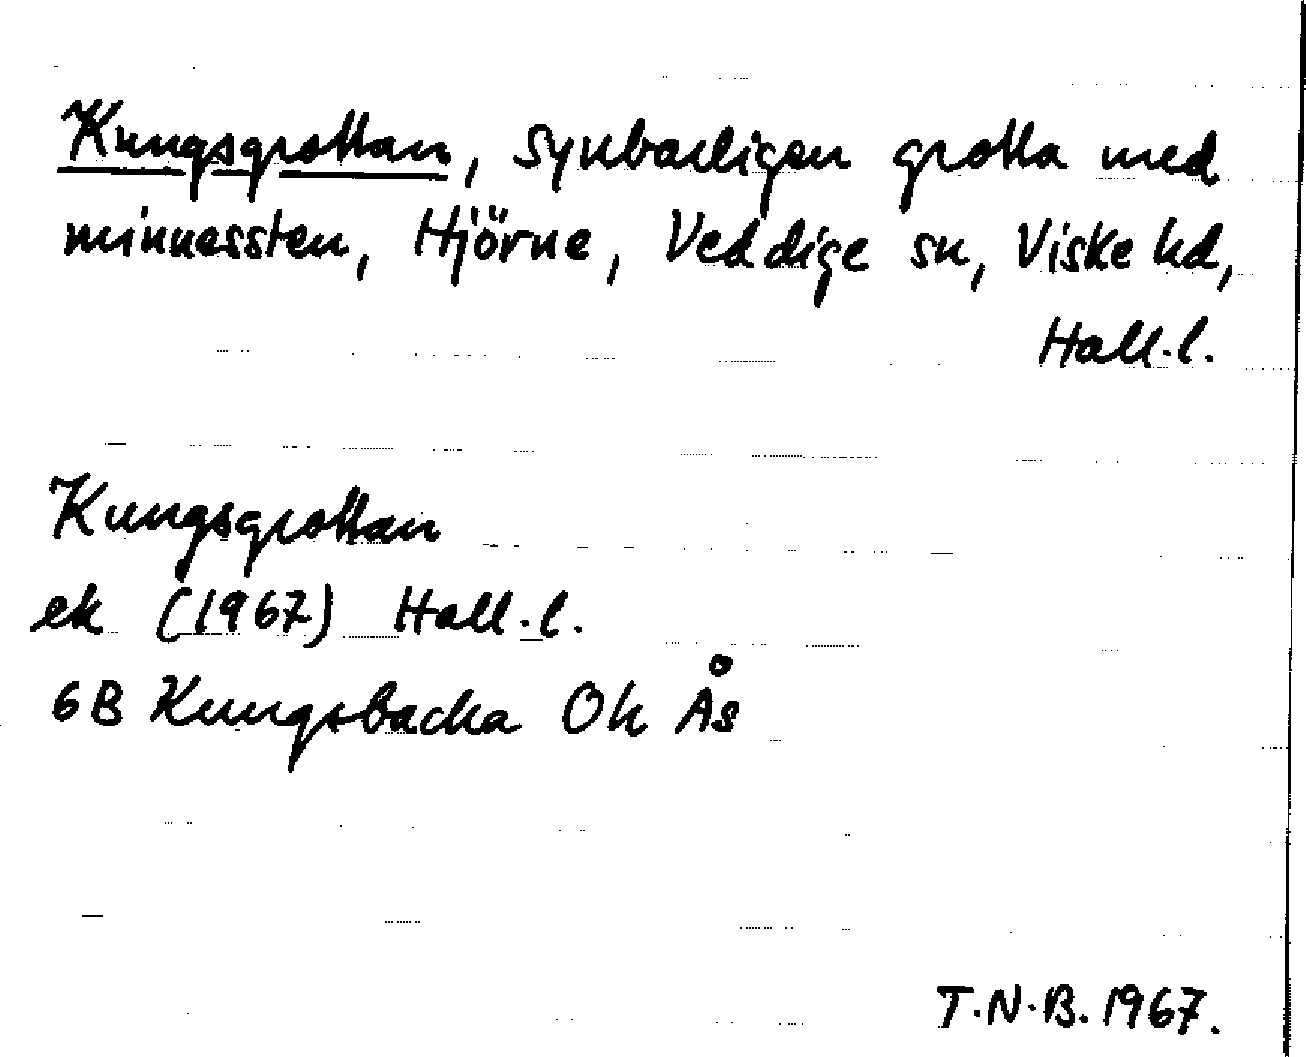 Kungsgrottan, synbarligen grotta med
minnessten, Hjörne, Veddige sn, Viske hd,
Hall.l.
Kungsgrottan
ek (1967) Hall.l.
6B Kungsbacka Ok Ås
T.N.B. 1967.